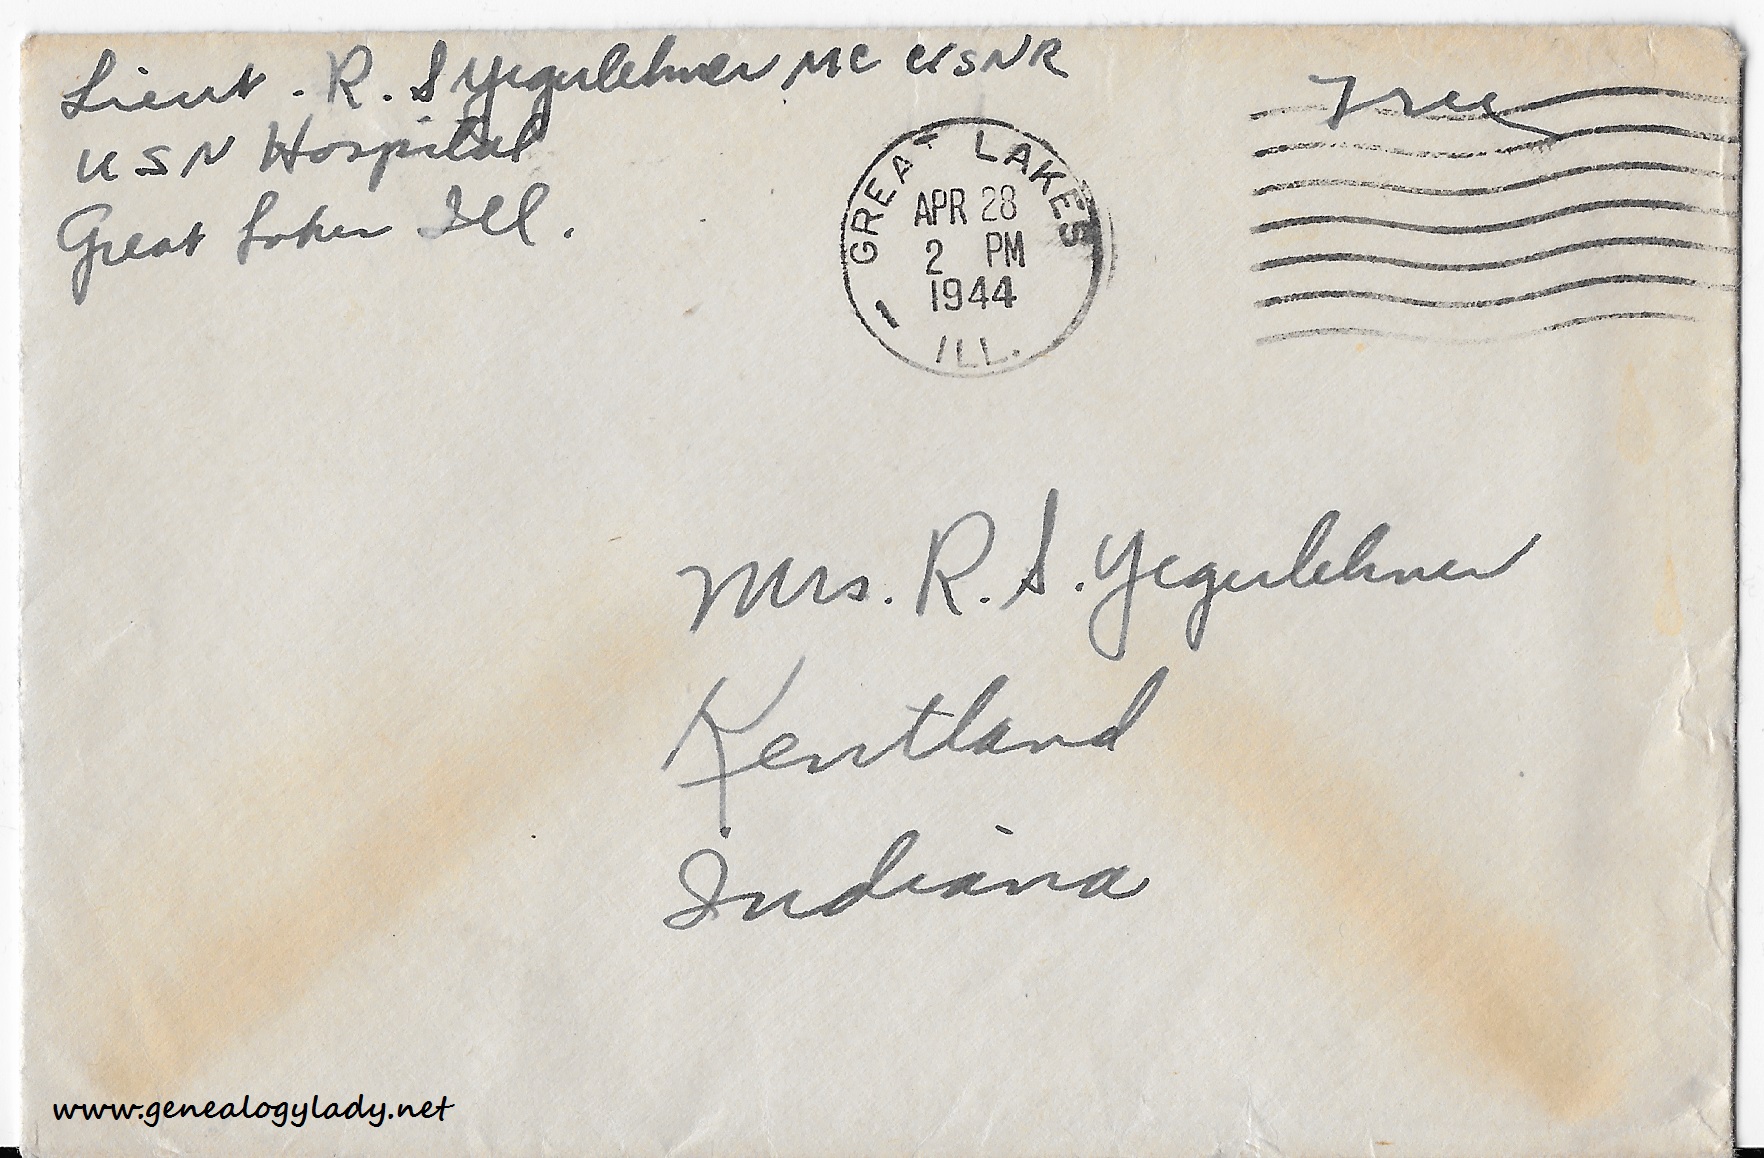 Lieut. R. S Yegerlehner MC USNR
USN Hospital
Great Lakes Ill.
Free
GREAT LAKES
APR 28
2 PM
1944
1
ILL.
Mrs. R. S. Yegerlehner
Kentland
Indiana
www.genealogylady.net